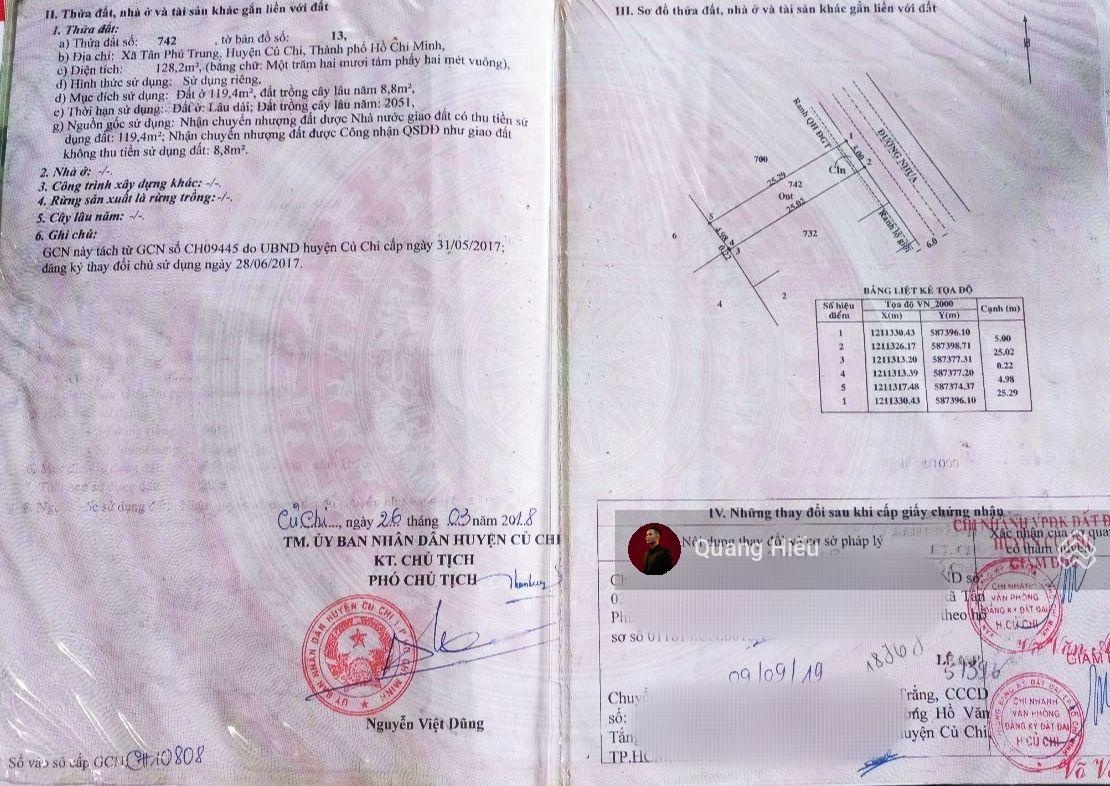 II. Thửa đất, nhà ở và tài sản khác gắn liền với đất
1. Thửa đất:
a) Thửa đất số: 742 , tờ bản đồ số: 13,
b) Địa chỉ: Xã Tân Phú Trung, Huyện Củ Chi, Thành phố Hồ Chí Minh,
c) Diện tích: 128,2m², (bằng chữ: Một trăm hai mươi tám phẩy hai mét vuông),
d) Hình thức sử dụng: Sử dụng riêng,
đ) Mục đích sử dụng: Đất ở 119,4m², đất trồng cây lâu năm 8,8m²,
e) Thời hạn sử dụng: Đất ở: Lâu dài; Đất trồng cây lâu năm: 2051,
g) Nguồn gốc sử dụng: Nhận chuyển nhượng đất được Nhà nước giao đất có thu tiền sử
dụng đất: 119,4m²; Nhận chuyển nhượng đất được Công nhận QSDĐ như giao đất
không thu tiền sử dụng đất: 8,8m².
2. Nhà ở: -/-.
3. Công trình xây dựng khác: -/-.
4. Rừng sản xuất là rừng trồng: -/-.
5. Cây lâu năm: -/-.
6. Ghi chú:
GCN này tách từ GCN số CH09445 do UBND huyện Củ Chi cấp ngày 31/05/2017;
đăng ký thay đổi chủ sử dụng ngày 28/06/2017.
Củ Chi..., ngày 26 tháng 03 năm 2018
TM. ỦY BAN NHÂN DÂN HUYỆN CỦ CHI
KT. CHỦ TỊCH
PHÓ CHỦ TỊCH
Nguyễn Việt Dũng
Số vào sổ cấp GCN: CH10808
III. Sơ đồ thửa đất, nhà ở và tài sản khác gắn liền với đất
B
Ranh QH ĐGT
ĐƯỜNG NHỰA
1
5.00
2
700
25.29
742
Cln
Ont
25.02
732
5
4.98
4
3
0.22
6
6.0
2
4
BẢNG LIỆT KÊ TỌA ĐỘ
Số hiệu điểm Tọa độ VN_2000 Cạnh (m)
X(m) Y(m)
1 1211330.43 587396.10
5.00
2 1211326.17 587398.71
25.02
3 1211313.20 587377.31
0.22
4 1211313.39 587377.20
4.98
5 1211317.48 587374.37
25.29
1 1211330.43 587396.10
IV. Những thay đổi sau khi cấp giấy chứng nhận
Nội dung thay đổi và cơ sở pháp lý
Xác nhận của cơ quan
có thẩm
CHI NHÁNH VPĐK ĐẤT Đ
GIÁM Đ
Quang Hiếu
ND số:
xã Tân
theo hồ
sơ số
CHI NHÁNH
VĂN PHÒNG
ĐĂNG KÝ ĐẤT ĐAI
H.CỦ CHI
09/09/19
GIÁM Đ
Chuyể
Trắng, CCCD
số:
ơng Hồ Văn
Tắng
uyện Củ Chi,
TP.HCM
CHI NHÁNH
VĂN PHÒNG
ĐĂNG KÝ ĐẤT ĐAI
H CỦ CHI
Võ V